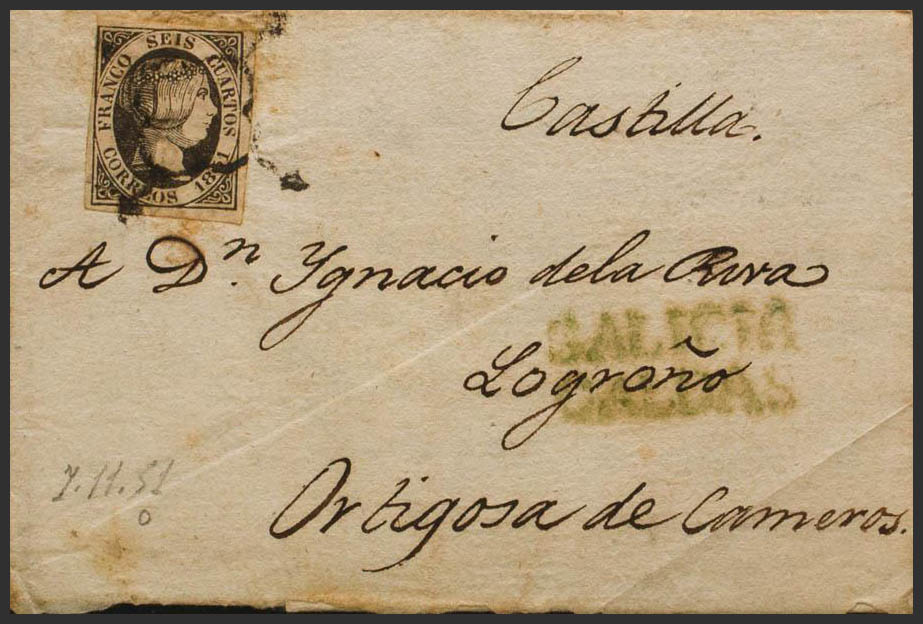 FRANCO SEIS CUARTOS
CORREOS 1851
Castilla.
A Dn. Ygnacio dela Riva
GALICIA
Logroño
Ortigosa de Cameros.
7.11.51
0